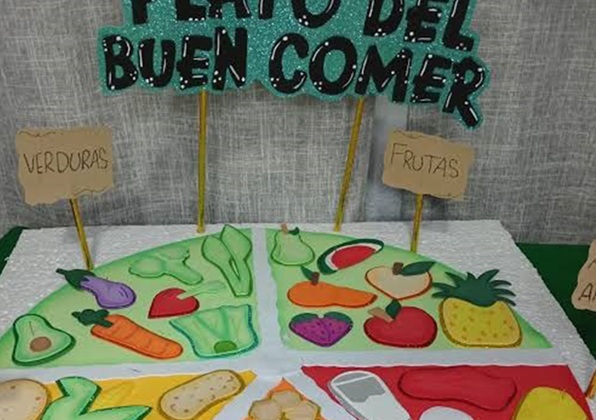 PLATO DEL
BUEN COMER
VERDURAS
FRUTAS